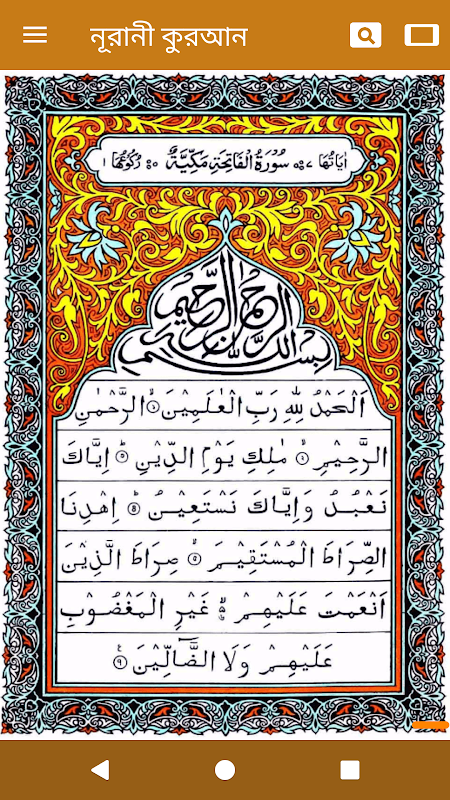 নূরানী কুরআন
اٰيَاتُهَا ٧ سُوْرَةُ الْفَاتِحَةِ مَكِّيَّةٌ ٥ رُكُوْعُهَا ١
بِسْمِ اللّٰهِ الرَّحْمٰنِ الرَّحِيْمِ
اَلْحَمْدُ لِلّٰهِ رَبِّ الْعٰلَمِيْنَ ۙ‏ الرَّحْمٰنِ
الرَّحِيْمِ ۙ‏ مٰلِكِ يَوْمِ الدِّيْنِ ۙ‏ اِيَّاكَ
نَعْبُدُ وَاِيَّاكَ نَسْتَعِيْنُ ۙ‏ اِهْدِنَا
الصِّرَاطَ الْمُسْتَقِيْمَ ۙ‏ صِرَاطَ الَّذِيْنَ
اَنْعَمْتَ عَلَيْهِمْ ۙ غَيْرِ الْمَغْضُوْبِ
عَلَيْهِمْ وَلَا الضَّآلِّيْنَ